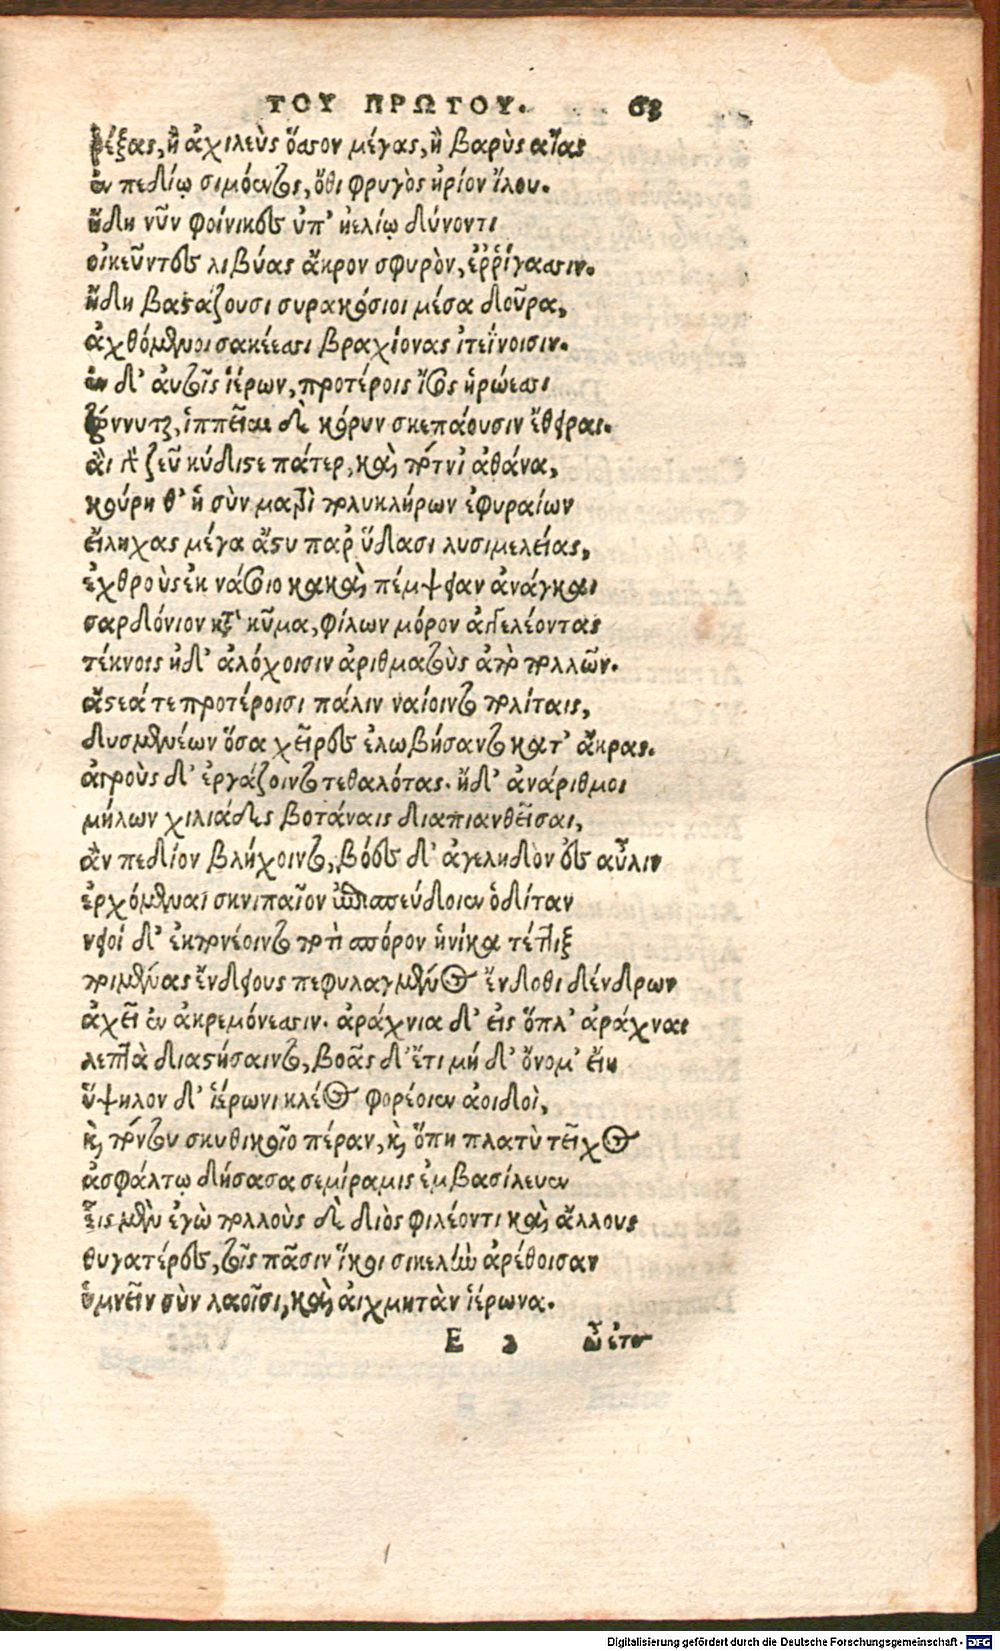 ΤΟΥ ΠΡΩΤΟΥ. 63
ῥέξας, ἢ ἀχιλεὺς ὅσσον μέγας, ἢ βαρὺς αἴας
ἐν πεδίῳ σιμόεντος, ὅθι φρυγὸς ἠρίον ἴλου.
ἤδη νῦν φοίνικες ὑπ' ἠελίῳ δύνοντι
οἰκεῦντες λιβύας ἄκρον σφυρὸν, ἐῤῥίγασσιν.
ἤδη βαστάζουσι συρακόσιοι μέσα δοῦρα,
ἀχθόμενοι σακέεσσι βραχίονας ἰτεΐνοισιν.
ἐν δ' αὐτοῖς ἱέρων, προτέροις ἴσος ἡρώεσσι
ζώννυται, ἵππειαι δὲ κόρυν σκεπάουσιν ἔθειραι.
αἲ γὰρ ζεῦ κύδιστε πάτερ, καὶ πότνι' ἀθάνα,
κούρη θ' ἣ σὺν ματρὶ πολυκλήρων ἐφυραίων
εἴληχας μέγα ἄστυ παρ' ὕδασι λυσιμελείας,
ἐχθροὺς ἐκ νάσοιο κακαὶ πέμψειαν ἀνάγκαι
σαρδόνιον κατὰ κῦμα, φίλων μόρον ἀγγελέοντας
τέκνοις ἠδ' ἀλόχοισιν ἀριθματοὺς ἀπὸ πολλῶν.
ἄστεά τε προτέροισι πάλιν ναίοιντο πολίταις,
δυσμενέων ὅσα χεῖρες ἐλωβήσαντο κατ' ἄκρας.
ἀγροὺς δ' ἐργάζοιντο τεθαλότας. ἠδ' ἀνάριθμοι
μήλων χιλιάδες βοτάναις διαπιανθεῖσαι,
ἂν πεδίον βλήχοιντο, βόες δ' ἀγεληδὸν ἐς αὖλιν
ἐρχόμεναι σκνιπαῖον ἐπισπεύδοιεν ὁδίταν
νειοὶ δ' ἐκπονέοιντο ποτὶ σπόρον ἡνίκα τέττιξ
ποιμένας ἔνδειους πεφυλαγμένος ἔνδοθι δένδρων
ἀχεῖ ἐν ἀκρεμόνεσσιν. ἀράχνια δ' εἰς ὅπλ' ἀράχναι
λεπτὰ διαστήσαιντο, βοᾶς δ' ἔτι μή δ' ὄνομ' εἴη
ὕψηλον δ' ἱέρωνι κλέος φορέοιεν ἀοιδοὶ,
καὶ πόντου σκυθικοῖο πέραν, καὶ ὅπη πλατὺ τεῖχος
ἀσφάλτῳ δήσασα σεμίραμις ἐμβασίλευεν
εἷς μὲν ἐγὼ πολλοὺς δὲ διὸς φιλέοντι καὶ ἄλλους
θυγατέρες, τοῖς πᾶσιν ἵκοι σικελὴν ἀρέθοισαν
ὑμνεῖν σὺν λαοῖσι, καὶ αἰχμητὰν ἱέρωνα.
E 2 ὦ ἐτεο
Digitalisierung gefördert durch die Deutsche Forschungsgemeinschaft - DFG